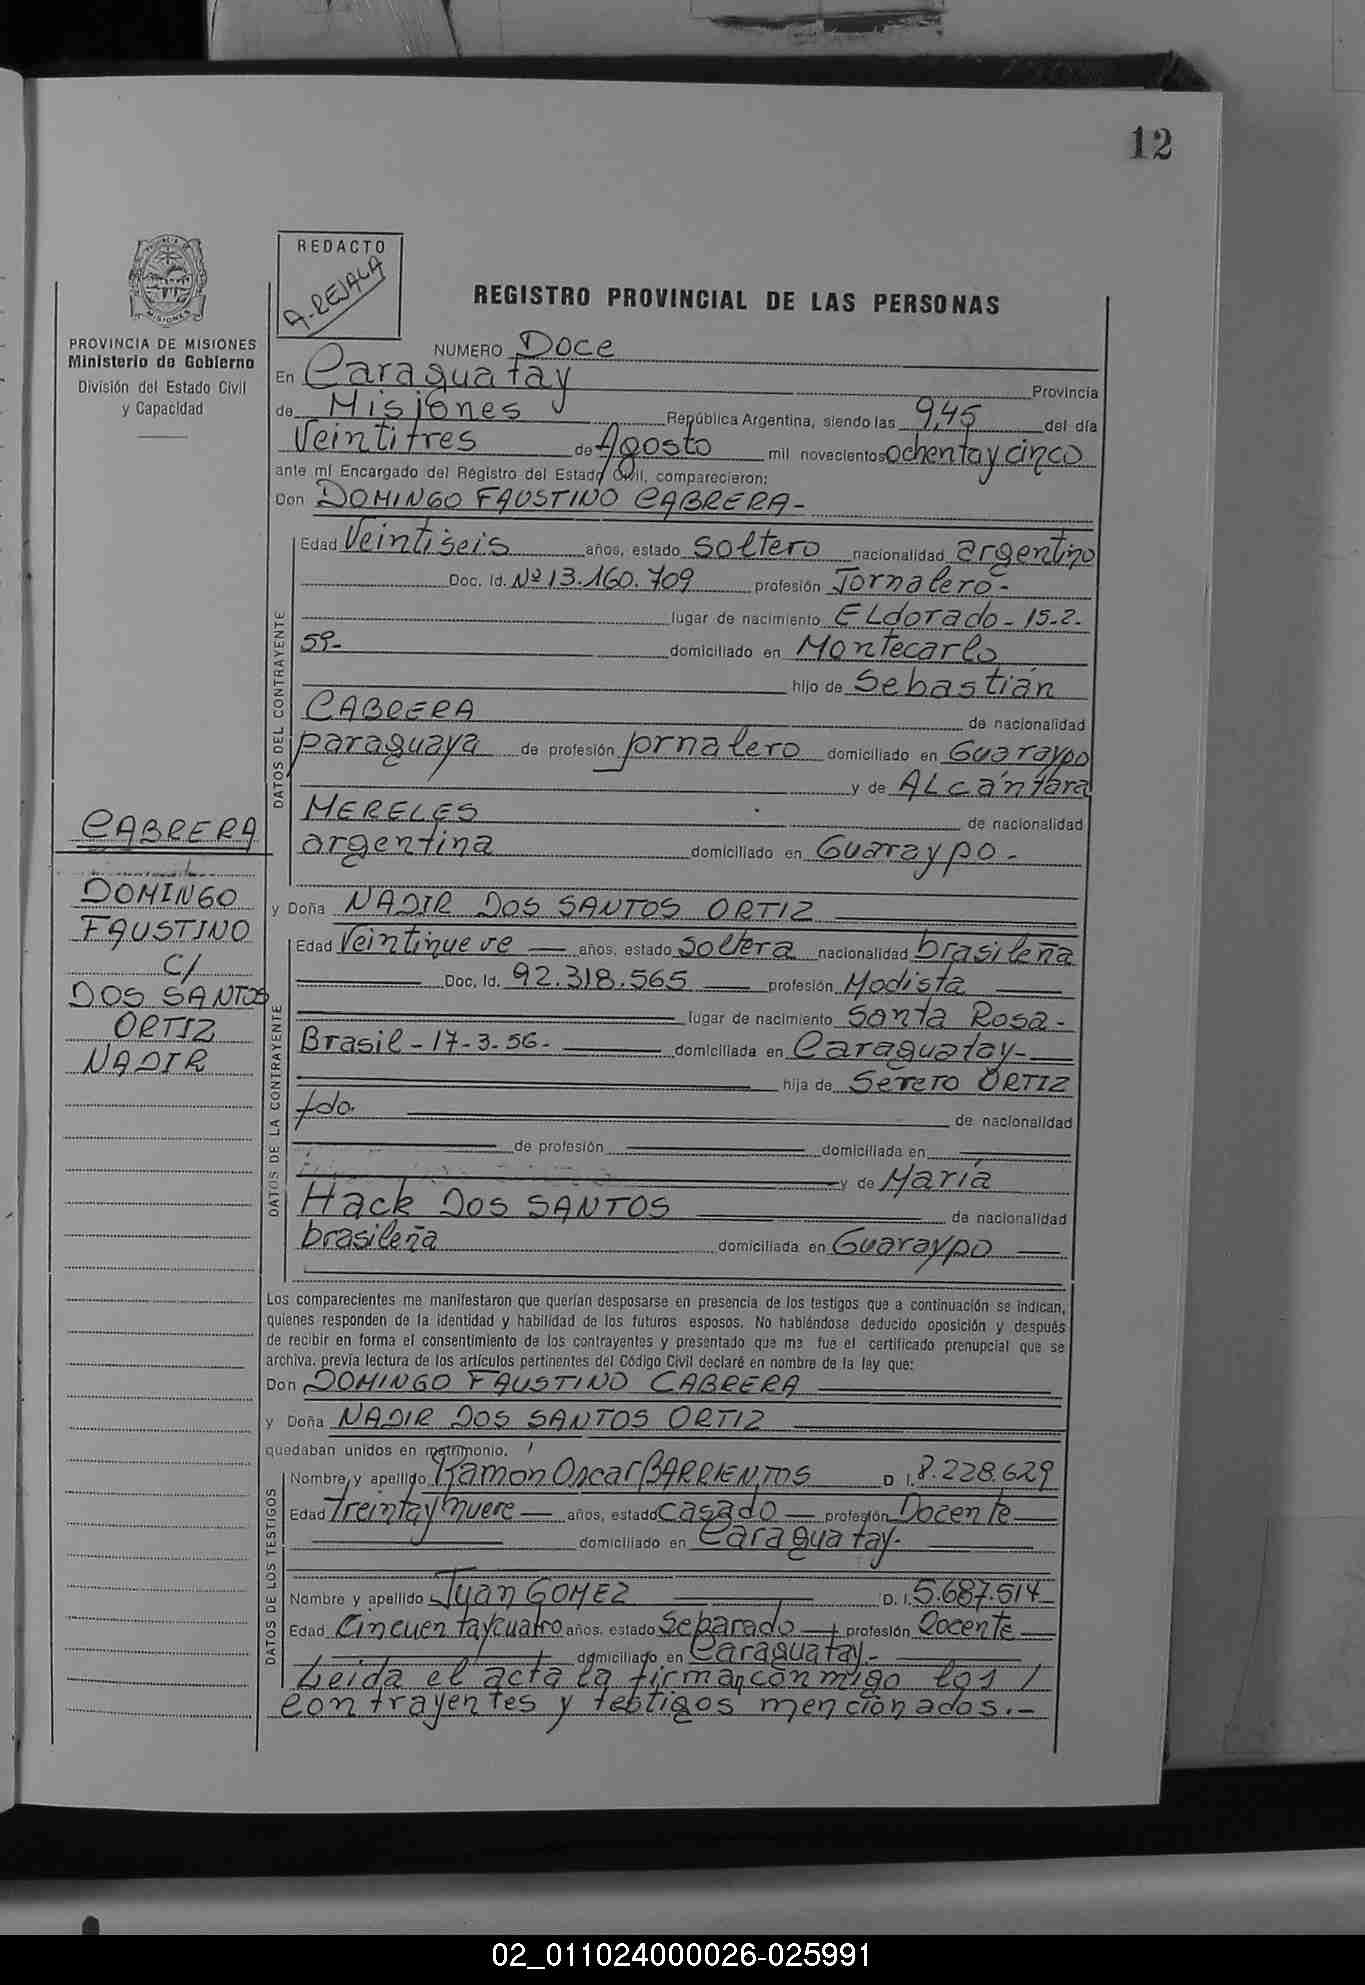 12
REDACTO
A. REJALA
REGISTRO PROVINCIAL DE LAS PERSONAS
PROVINCIA DE MISIONES
Ministerio de Gobierno
División del Estado Civil
y Capacidad
NUMERO Doce
En Caraguatay Provincia
de Misiones República Argentina, siendo las 9,45 del día
Veintitres de Agosto mil novecientos ochenta y cinco
ante mí Encargado del Registro del Estado Civil, comparecieron:
Don DOMINGO FAUSTINO CABRERA-
DATOS DEL CONTRAYENTE
Edad Veintiseis años, estado soltero nacionalidad argentino
Doc. Id. Nº 13.160.709 profesión Jornalero-
lugar de nacimiento ELdorado - 15-2-
59- domiciliado en Montecarlo
hijo de Sebastián
CABRERA de nacionalidad
paraguaya de profesión jornalero domiciliado en Guaraypo
y de ALcántara
MERELES de nacionalidad
argentina domiciliado en Guaraypo-
CABRERA
DOMINGO
FAUSTINO
C/
DOS SANTOS
ORTIZ
NADIR
y Doña NADIR DOS SANTOS ORTIZ
DATOS DE LA CONTRAYENTE
Edad Veintinueve años, estado soltera nacionalidad brasileña
Doc. Id. 92.318.565 profesión Modista
lugar de nacimiento Santa Rosa-
Brasil - 17-3-56- domiciliada en Caraguatay-
hija de Sereto ORTIZ
fdo. de nacionalidad
de profesión domiciliada en
y de María
Hack DOS SANTOS de nacionalidad
brasileña domiciliada en Guaraypo
Los comparecientes me manifestaron que querían desposarse en presencia de los testigos que a continuación se indican,
quienes responden de la identidad y habilidad de los futuros esposos. No habiéndose deducido oposición y después
de recibir en forma el consentimiento de los contrayentes y presentado que me fue el certificado prenupcial que se
archiva, previa lectura de los artículos pertinentes del Código Civil declaré en nombre de la ley que:
Don DOMINGO FAUSTINO CABRERA
y Doña NADIR DOS SANTOS ORTIZ
quedaban unidos en matrimonio.
DATOS DE LOS TESTIGOS
Nombre y apellido Ramon Oscar BARRIENTOS D. I. 8.228.629
Edad Treinta y nueve años, estado casado profesión Docente
domiciliado en Caraguatay-
Nombre y apellido Juan GOMEZ D. I. 5.687.514
Edad Cincuentaycuatro años, estado Separado profesión Docente
domiciliado en Caraguatay-
Leida el acta la firman conmigo los /
contrayentes y testigos mencionados.-
02_011024000026-025991